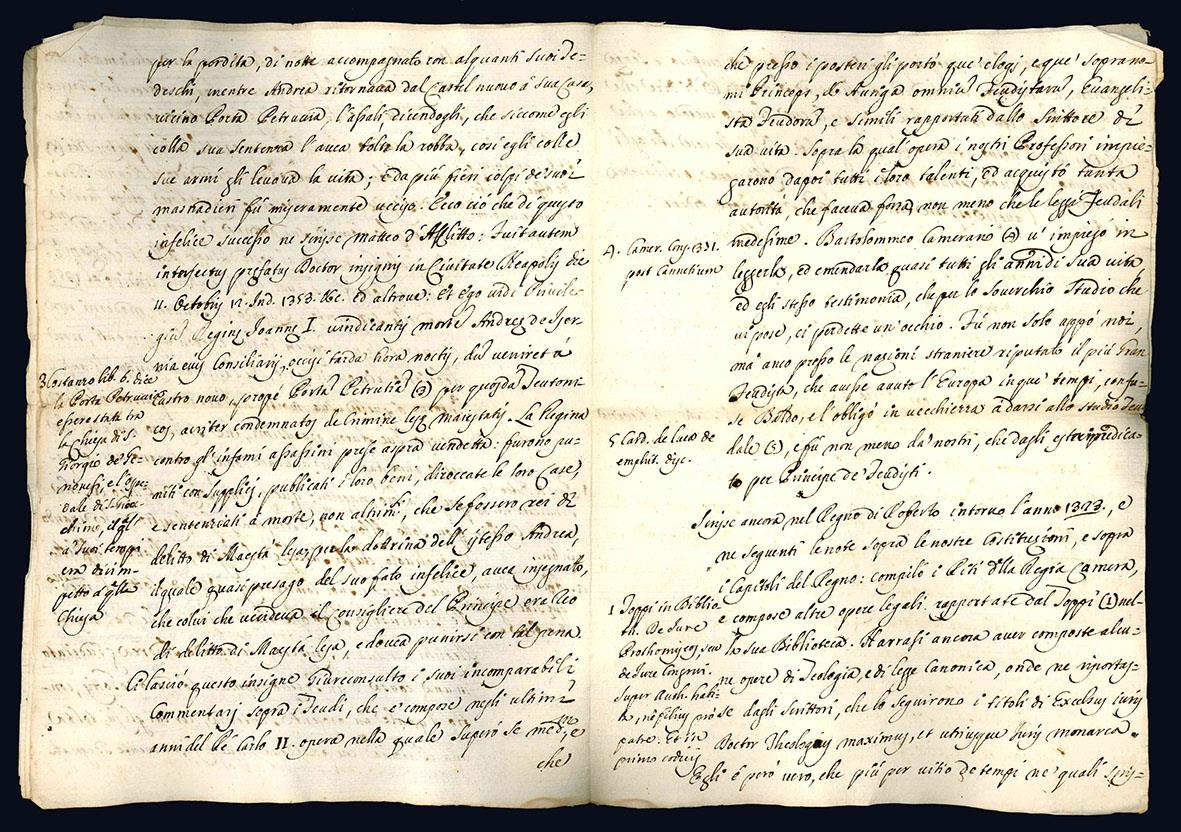 per la perdita, di notte accompagnato con alquanti suoi Te-
deschi, mentre Andrea ritornava dal Castel nuovo à sua Casa,
vicino Porta Petruccia, l'assalì dicendogli, che siccome egli
colla sua sentenza l'avea tolta la robba, così egli colle
sue armi gli levava la vita; e da più fieri colpi de' suoi
masnadieri fù miseramente ucciso. Ecco ciò che di questo
infelice successo ne scrisse Matteo d'Afflitto: Fuit autem
interfectus prefatus Doctor insignis in Civitate Neapolis die
11. Octobris 12. Ind. 1353. ed altrove: Et Ego vidi Privile-
giũ Reginę Joannę I. vindicantis morte Andreę de Iser-
nia eius Consiliarij, occisi tarda hora noctis, dũ veniret à
Castro novo, propè Portã Petrutiã (3) per quosdã Teutoni-
cos, acriter condemnatos de Crimine lesę maiestatis. La Regina
contro gl'infami assassini prese aspra vendetta: furono pu-
niti con supplicj, publicati i loro beni, diroccate le loro Case,
e sentenziati à morte, non altrimẽ, che se fossero rei di
delitto di Maestà lesa, per la dottrina dell'istesso Andrea,
il quale quasi presago del suo fato infelice, avea insegnato,
che colui che uccideva il Consigliere del Principe era reo
di delitto di Maestà lesa, e dovea punirsi con tal pena.
Ci lasciò questo insigne Giureconsulto i suoi incomparabili
Commentarj sopra i Feudi, che è compose negli ultimi
anni del Rè Carlo II. opera nella quale superò se medmo, e
che
3 Costanzo lib. 6. dice
la Porta Petruccia
essere stata tra
la Chiesa di S.
Giorgio de' Ge-
novesi, e l'Ospe-
dale di S. Gioac-
chino, el ql
a' suoi tempi
era dirim-
petto à qlla
Chiesa
che presso i posteri gli portò que' elogj, e que' sopranno-
mi Princeps, & Auriga omniũ Feudistarũ, Evangeli-
sta Feudorũ, e simili rapportati dallo Scrittore di
sua vita: sopra la qual'opera i nostri Professori impie-
garono dapoi tutti i loro talenti, ed acquistò tanta
autorità, che faceva forza non meno che le leggi Feudali
medesime. Bartolommeo Camerano (4) v'impiegò in
leggerla, ed emendarla quasi tutti gli anni di sua vita
ed egli stesso testimonia, che per lo soverchio studio che
vi pose, ci perdette un'occhio. Fù non solo appò noi,
mà anco presso le nazioni straniere riputato il più Gran
Feudista, che avesse avuto l'Europa in que' tempi, confu-
se Baldo, e l'obligò in vecchiezza à darsi allo studio feu-
dale (5), e fù non meno da' nostri, che dagli esteri predica-
to per Principe de' Feudisti.
Scrisse ancora nel Regno di Roberto intorno l'anno 1323., e
ne seguenti le note sopra le nostre Costituzioni, e sopra
i Capitoli del Regno: compilò i Riti d'lla Regia Camera,
e compose altre opere legali rapportate dal Toppi (1) nel-
la sua Biblioteca. Narrasi ancora aver composte alcu-
ne opere di Teologia, e di legge Canonica, onde ne riportas-
se dagli Scrittori, che lo seguirono i titoli di Excelsus iuris
Doctor Theologus maximus, et utriusque Juris monarca.
Egli è però vero, che più per vitio de tempi ne' quali scris-
4. Camer. Cons. 331.
post Cannetium
5 Card. de Luca de
emphit. disc.
1 Toppi in Biblio-
th. De Jure
Prothomiseos, seu
de Jure Congrui.
Super Auth. habi-
ta, ne filius pro
patre. Et in
primo codicis